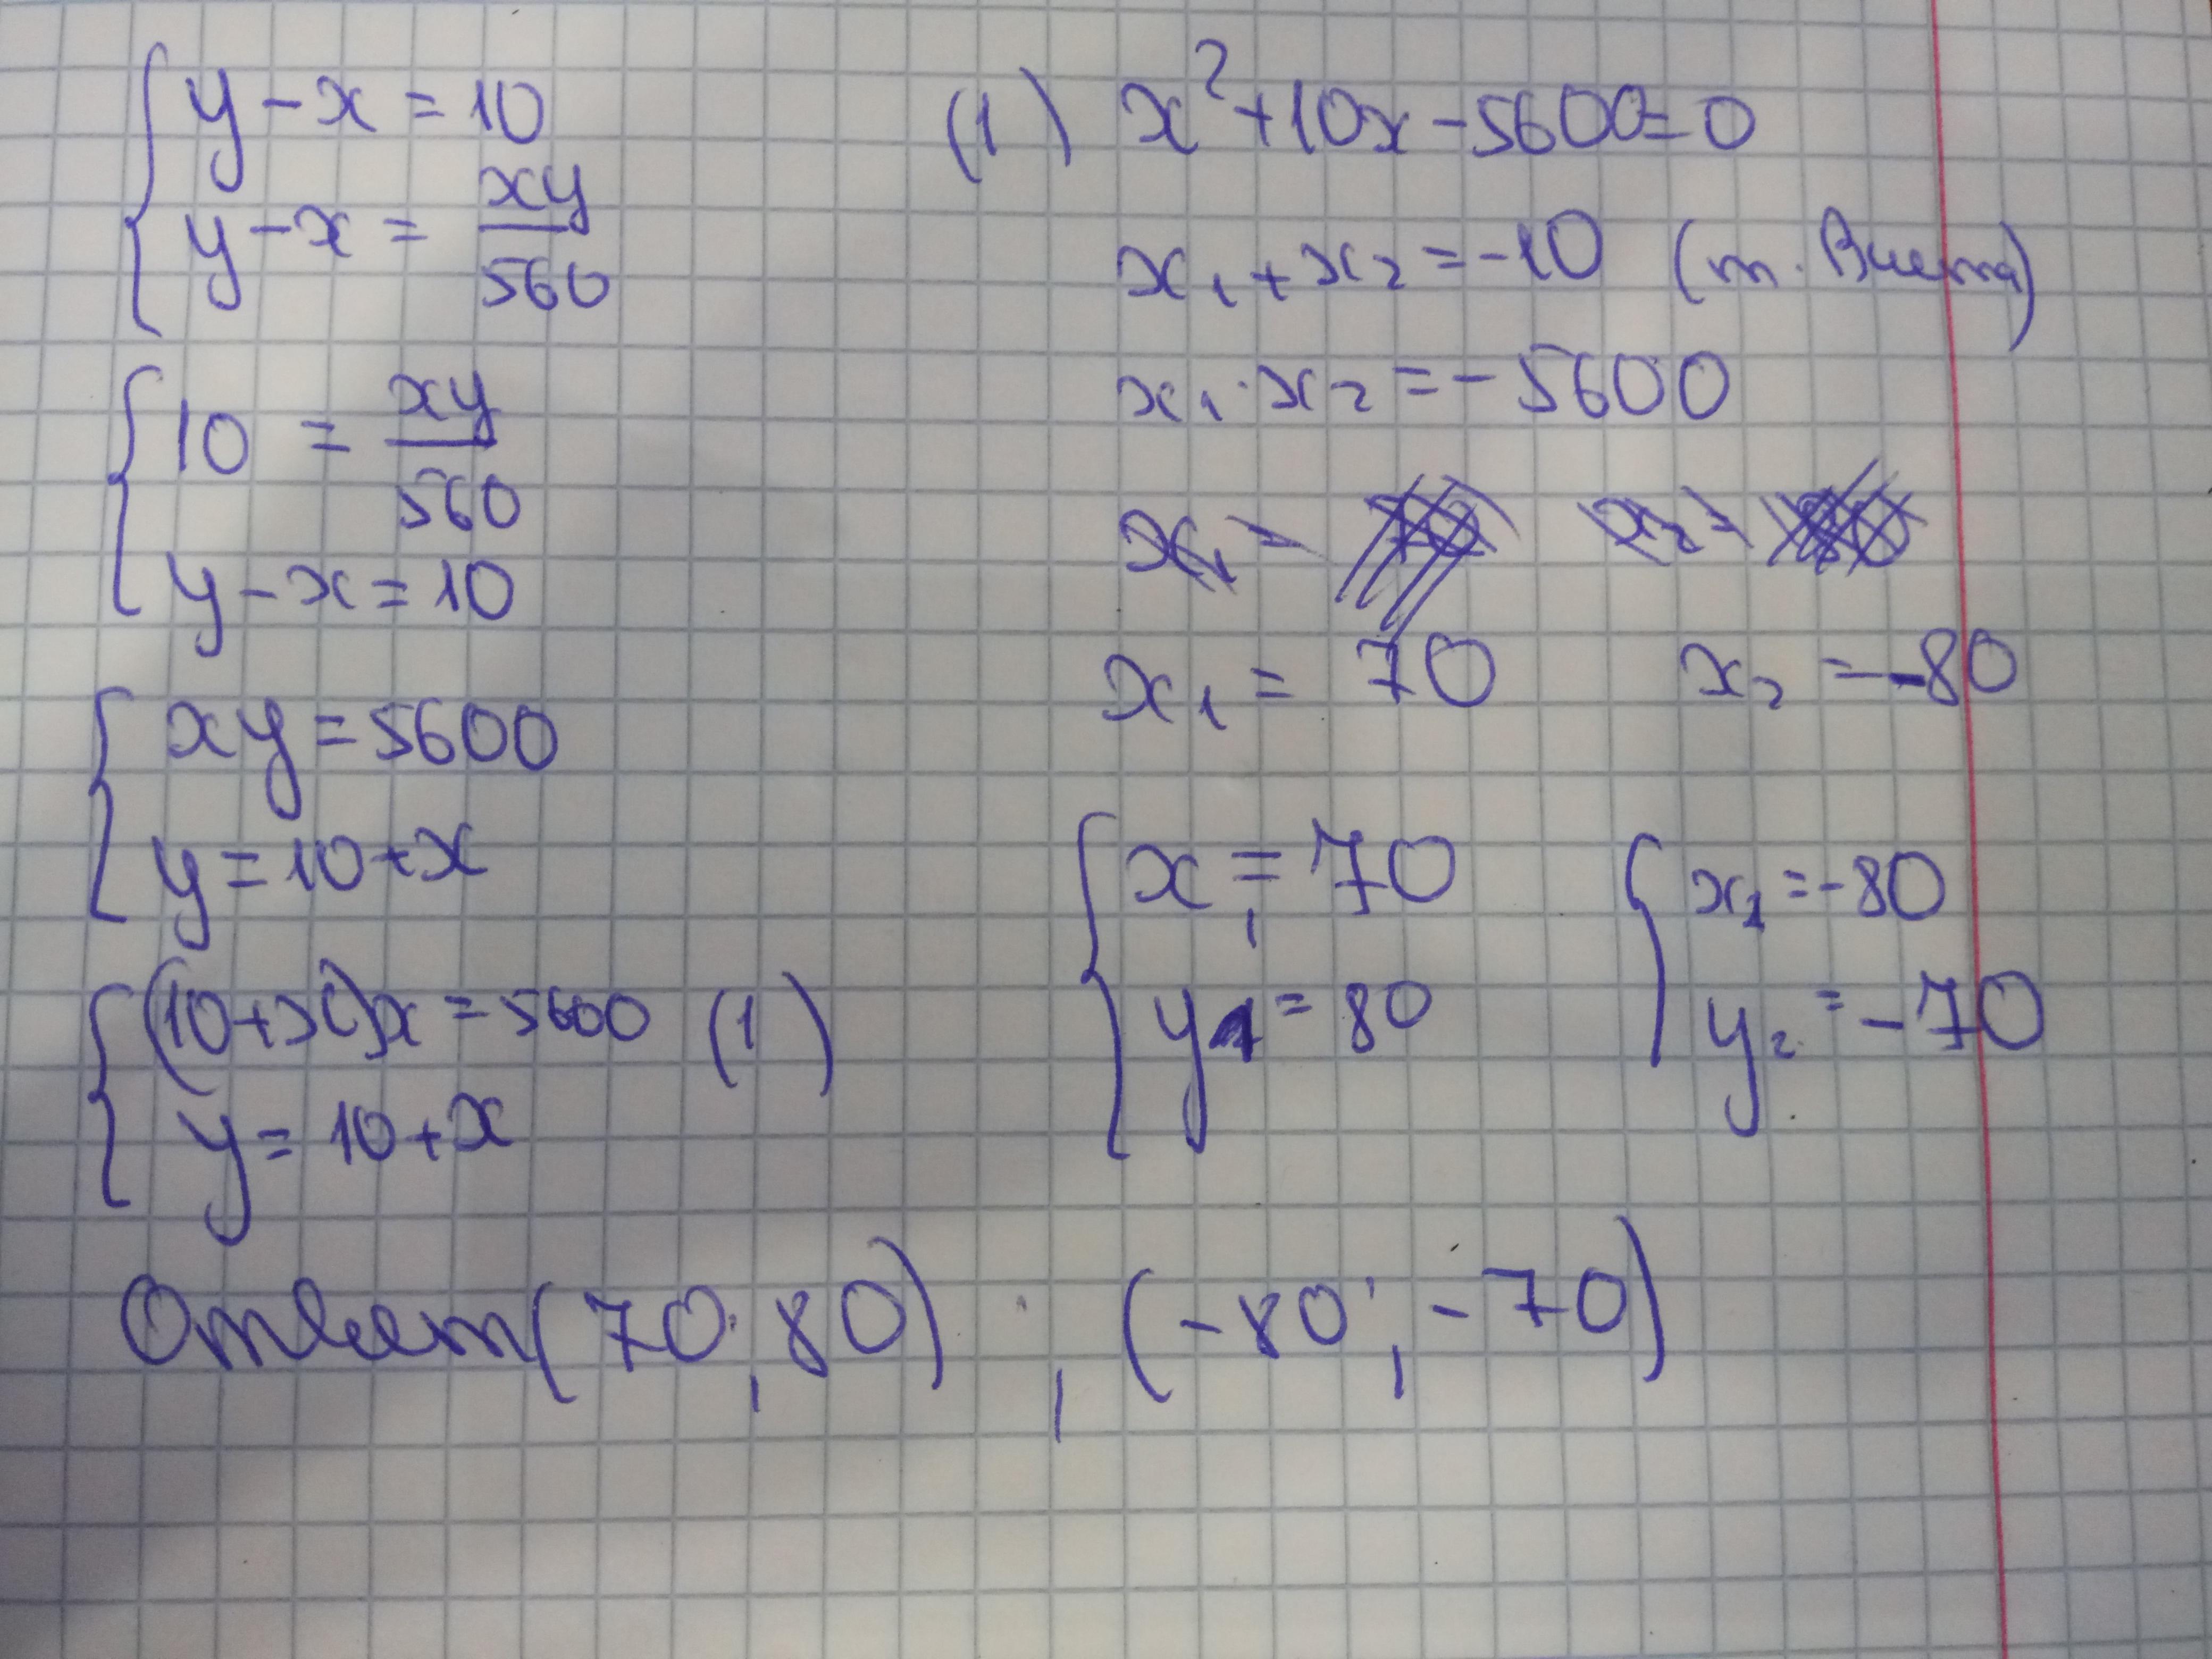 y - x = 10
y - x = xy/560
10 = xy/560
y - x = 10
xy = 5600
y = 10 + x
(10+x)x = 5600 (1)
y = 10 + x
(1) x² + 10x - 5600 = 0
x₁ + x₂ = -10 (т. Виета)
x₁ · x₂ = -5600
x₁ = 70 x₂ = -80
x₁ = 70
y₁ = 80
x₁ = -80
y₂ = -70
Ответ (70; 80) ; (-80; -70)